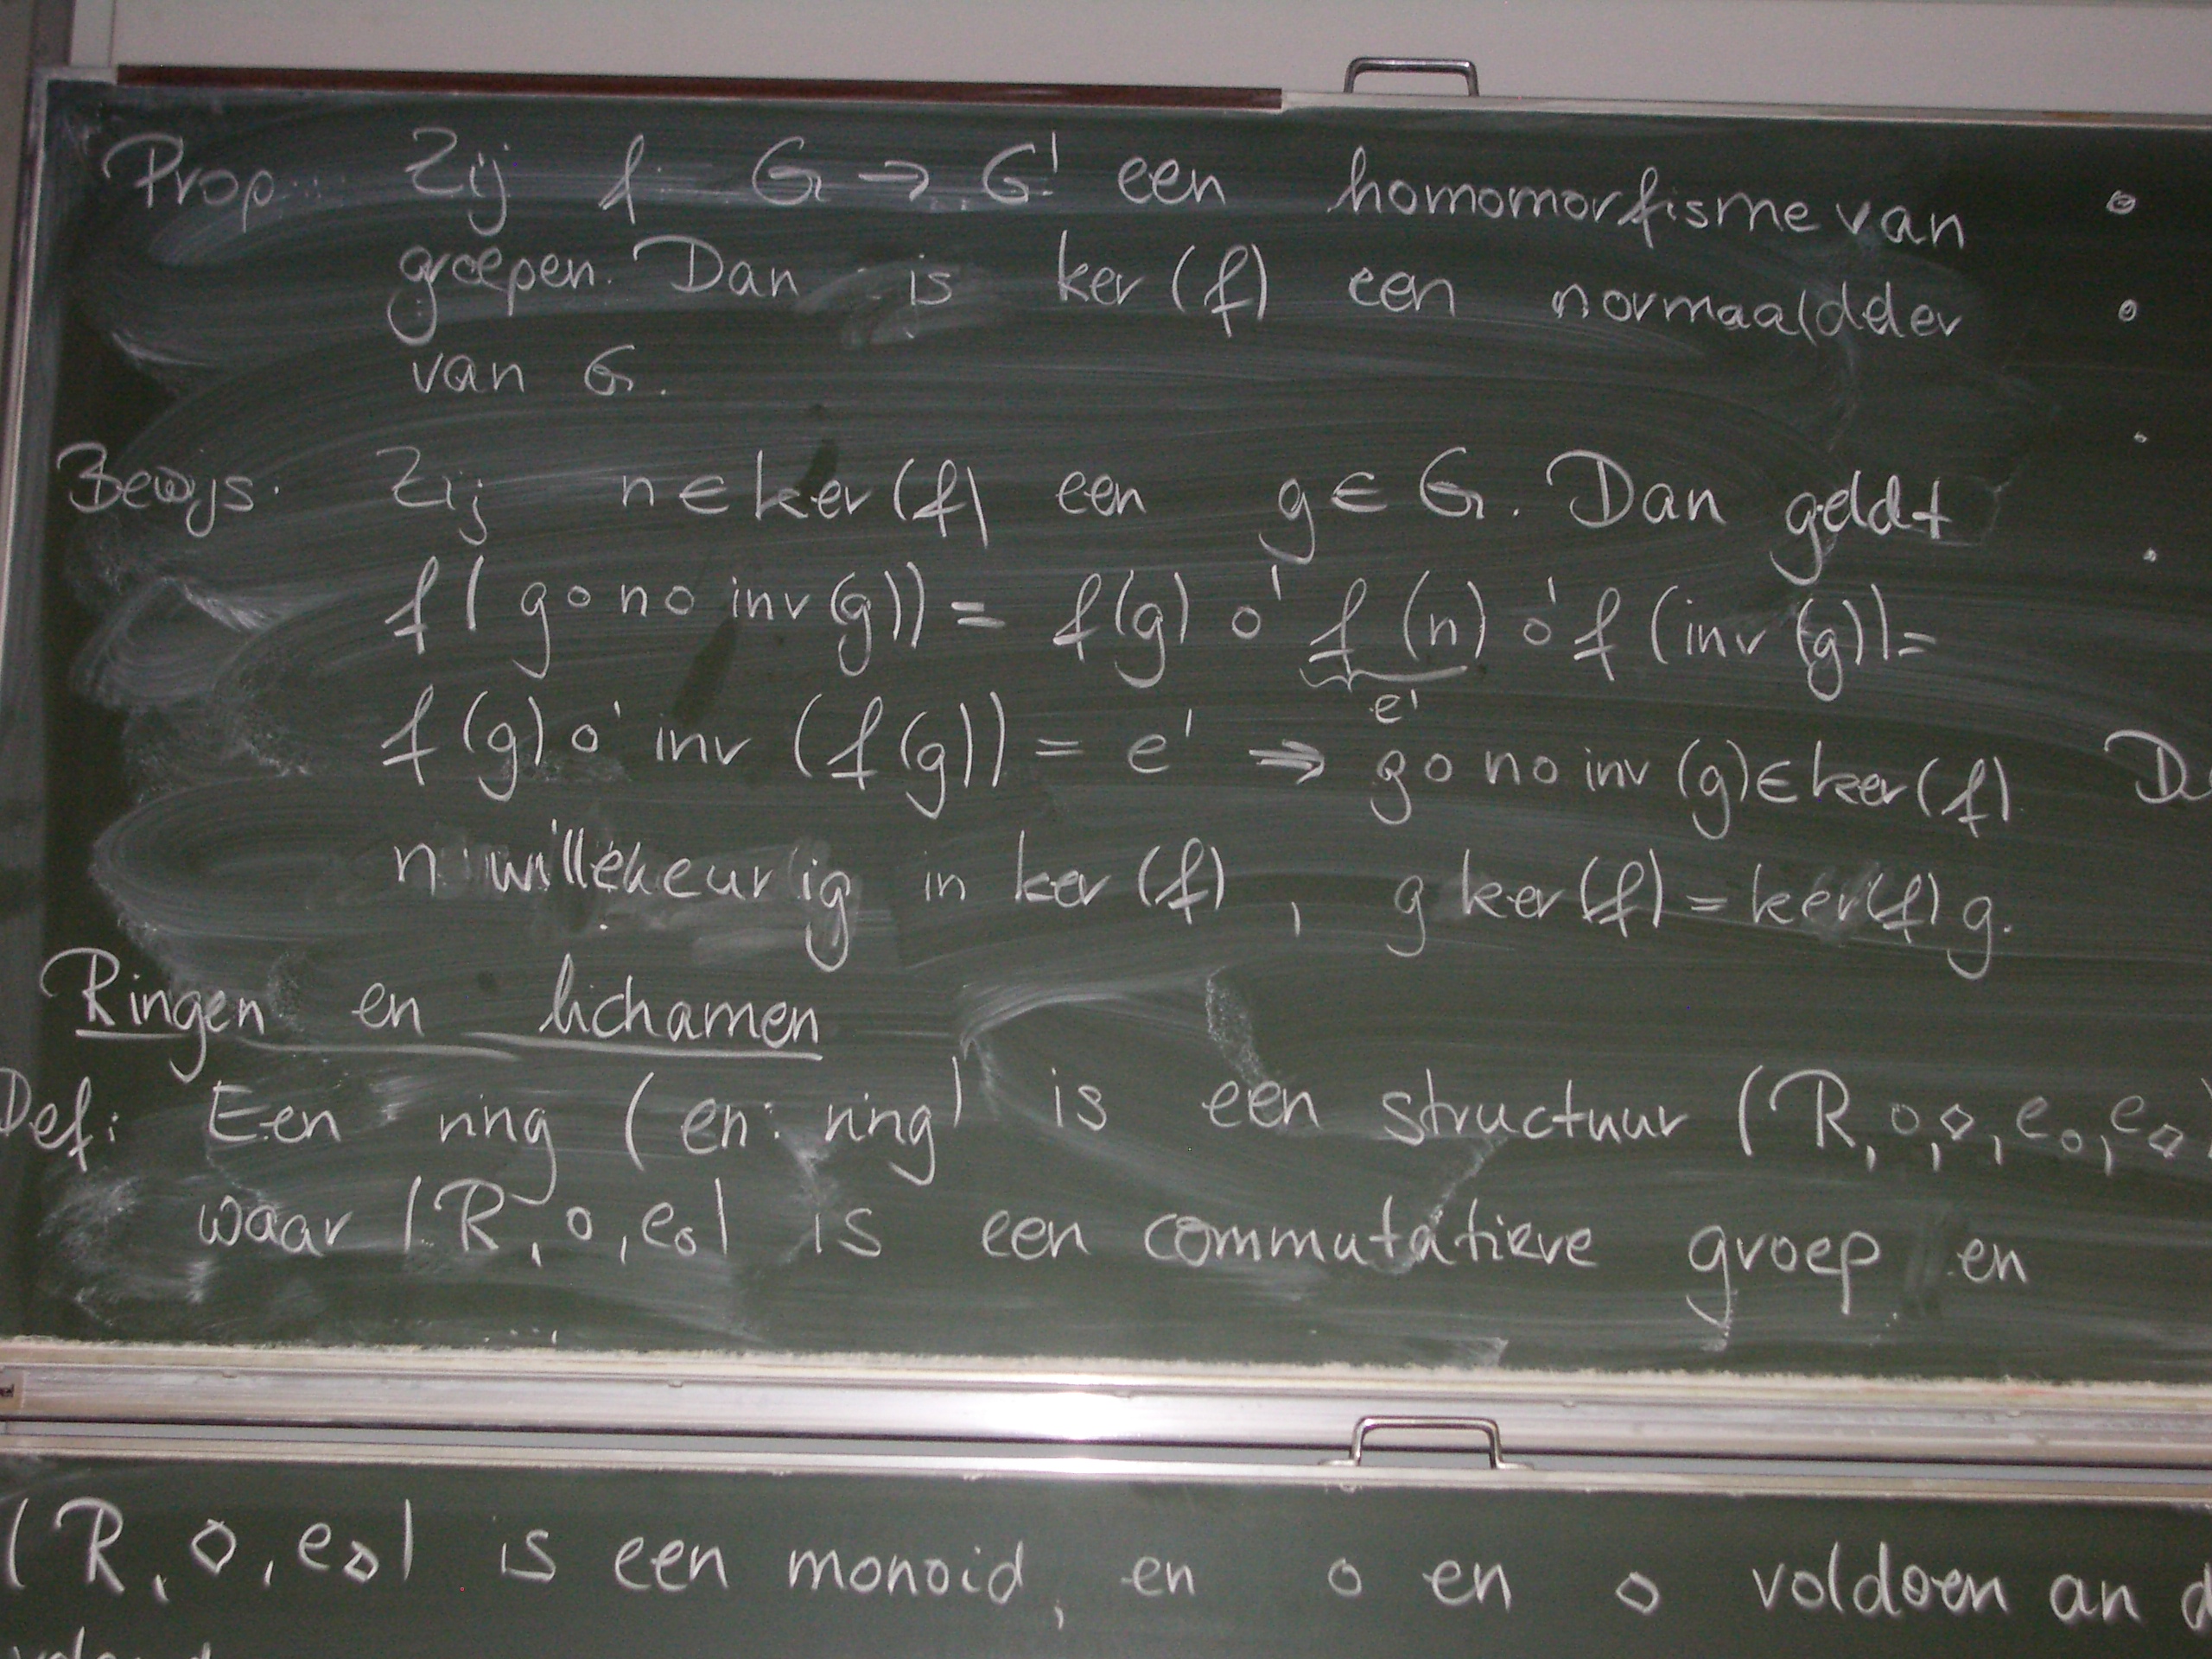 Prop: Zij f: G → G' een homomorfisme van
groepen. Dan is ker (f) een normaaldeler
van G.
Bewijs: Zij n ∈ ker (f) een g ∈ G. Dan geldt
f ( g ∘ n ∘ inv (g)) = f(g) ∘' f (n) ∘' f (inv (g)) =
e'
f (g) ∘' inv (f (g)) = e' ⇒ g ∘ n ∘ inv (g) ∈ ker (f)
n willekeurig in ker (f), g ker (f) = ker(f) g.
Ringen en lichamen
Def: Een ring (en: ring) is een structuur (R, ∘, ⋄, e∘, e⋄)
waar (R, ∘, e∘) is een commutatieve groep en
(R, ⋄, e⋄) is een monoid, en ∘ en ⋄ voldoen an